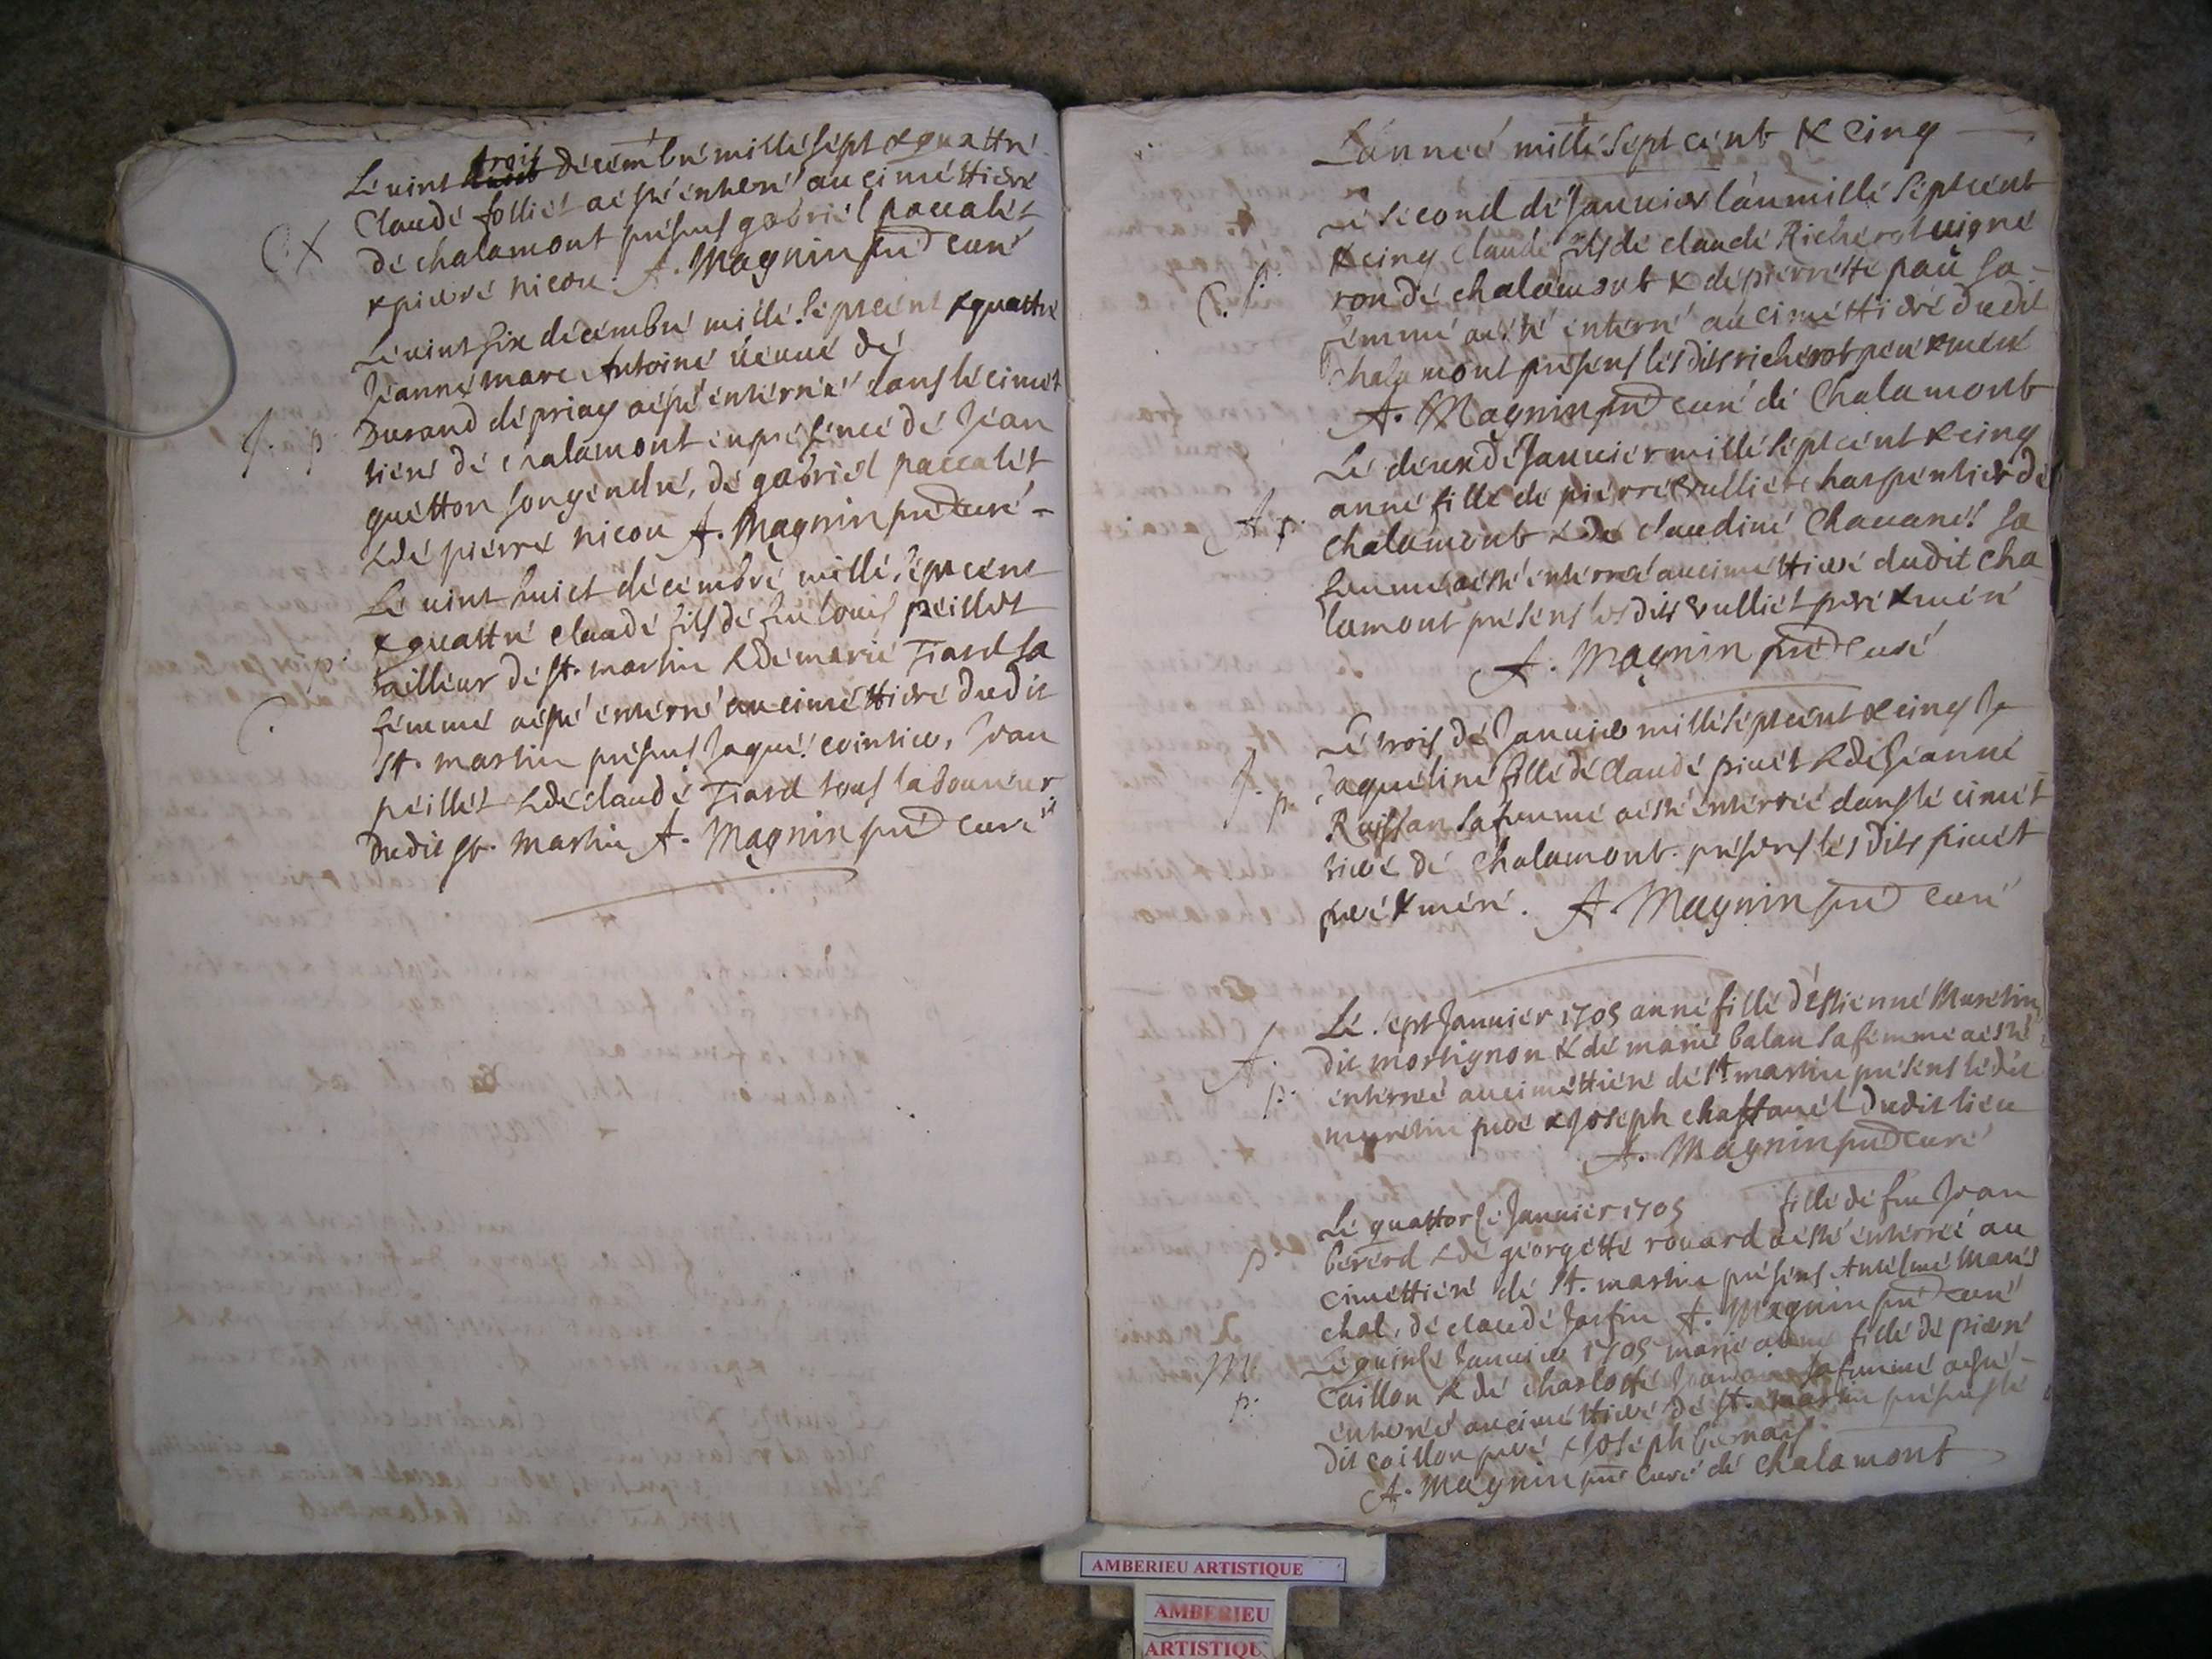 Le vint trois décembre mille sept & quattre
Claude folliet a esté enterré au cimettiere
C. X
de chalamont présens gabriel paccalet
& pierre nicou. A. Magnin pre curé
Le vint six décembre mille septcent & quattre
Jeanne marc Antoine veuve de
J. p.
Durand de priay a esté enterrée dans le cimet
tiere de chalamont en présence de Jean
guetton son gendre, de gabriel paccalet
& de pierre nicou A. Magnin pre curé -
Le vint huict décembre mille septcent
& quattre claude fils de feu louis peillet
p.
tailleur de st. martin & de marie Tiard sa
C.
femme a esté enterré au cimettiere dudit
st. martin présens Jaques cointier, Jean
peillet & de claude Tiard tous laboureurs
dudit st. martin A. Magnin pre curé
L'année mille sept cent & cinq
Le second de Janvier l'an mille septcent
& cinq claude fils de claude Richerot vigne
C. p.
ron de chalamont & de pierrette pau sa
femme a esté enterré au cimettiere dudit
chalamont présens lesdits richerot pere & mere
A. Magnin pre curé de Chalamont
Le deux de Janvier mille septcent & cinq
anne fille de pierre vulliet charpentier de
A p.
chalamont & de claudine Chavanes sa
femme a esté enterrée au cimettiere dudit cha
lamont présens lesdits vulliet pere & mere
A. Magnin pre curé
Le trois de Janvier mille septcent & cinq Ja
J. p.
Jaqueline fille de Claude pivet & de Jeanne
Ruissan sa femme a esté enterrée dans le cimet
tiere de chalamont. présens lesdits pivet
pere & mere. A. Magnin pre curé
Le sept Janvier 1705 anne fille d'estienne Muretin
A.
dit mortignon & de marie balan sa femme a esté
p.
enterrée au cimettiere de st. martin présens ledit
muretin pere & Joseph chaffanel dudit lieu
A. Magnin pre curé
Le quattorse Janvier 1705 fille de feu Jean
p.
bererd & de georgette rouard a esté enterrée au
cimettiere de st. martin présens Antelme Maré
chal, de claude Jarfin A. Magnin pre curé
M
Le quinse Janvier 1705 marie anne fille de pierre
p.
Caillon & de charlotte sa femme a esté
enterrée au cimettiere de st. martin présens le
dit caillon pere & Joseph bernard
A. Magnin pre curé de chalamont
AMBERIEU ARTISTIQUE
AMBERIEU
ARTISTIQU